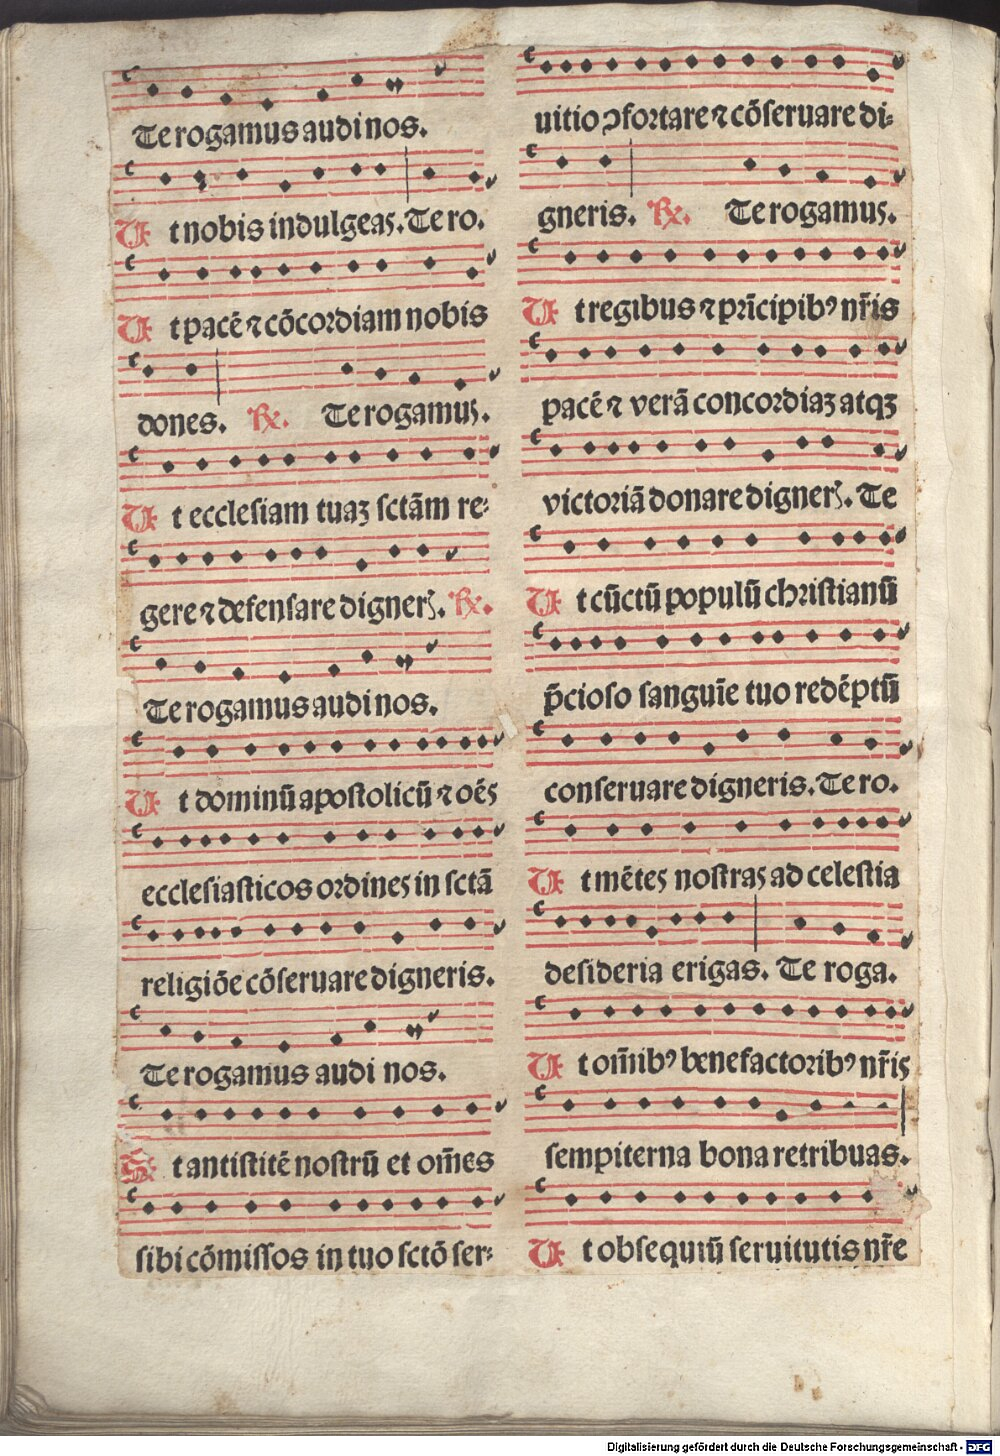 Te rogamus audi nos.
Ut nobis indulgeas. Te ro.
Ut pacē ⁊ cōcordiam nobis
dones. ℟. Te rogamus.
Ut ecclesiam tuaꝫ sctām re-
gere ⁊ defensare digner̄. ℟.
Te rogamus audi nos.
Ut dominū apostolicū ⁊ oēs
ecclesiasticos ordines in sctā
religiōe cōseruare digneris.
Te rogamus audi nos.
Et antistitē nostrū et om̄es
sibi cōmissos in tuo sctō ser-
uitio ↄfortare ⁊ cōseruare di-
gneris. ℟. Te rogamus.
Ut regibus ⁊ prīcipibꝰ nr̄is
pacē ⁊ verā concordiaꝫ atqꝫ
victoriā donare digner̄. Te
Ut cūctū populū christianū
p̄cioso sanguīe tuo redēptū
conseruare digneris. Te ro.
Ut mētes nostras ad celestia
desideria erigas. Te roga.
Ut om̄ibꝰ benefactoribꝰ nr̄is
sempiterna bona retribuas.
Ut obsequiū seruitutis nr̄e
Digitalisierung gefördert durch die Deutsche Forschungsgemeinschaft - DFG